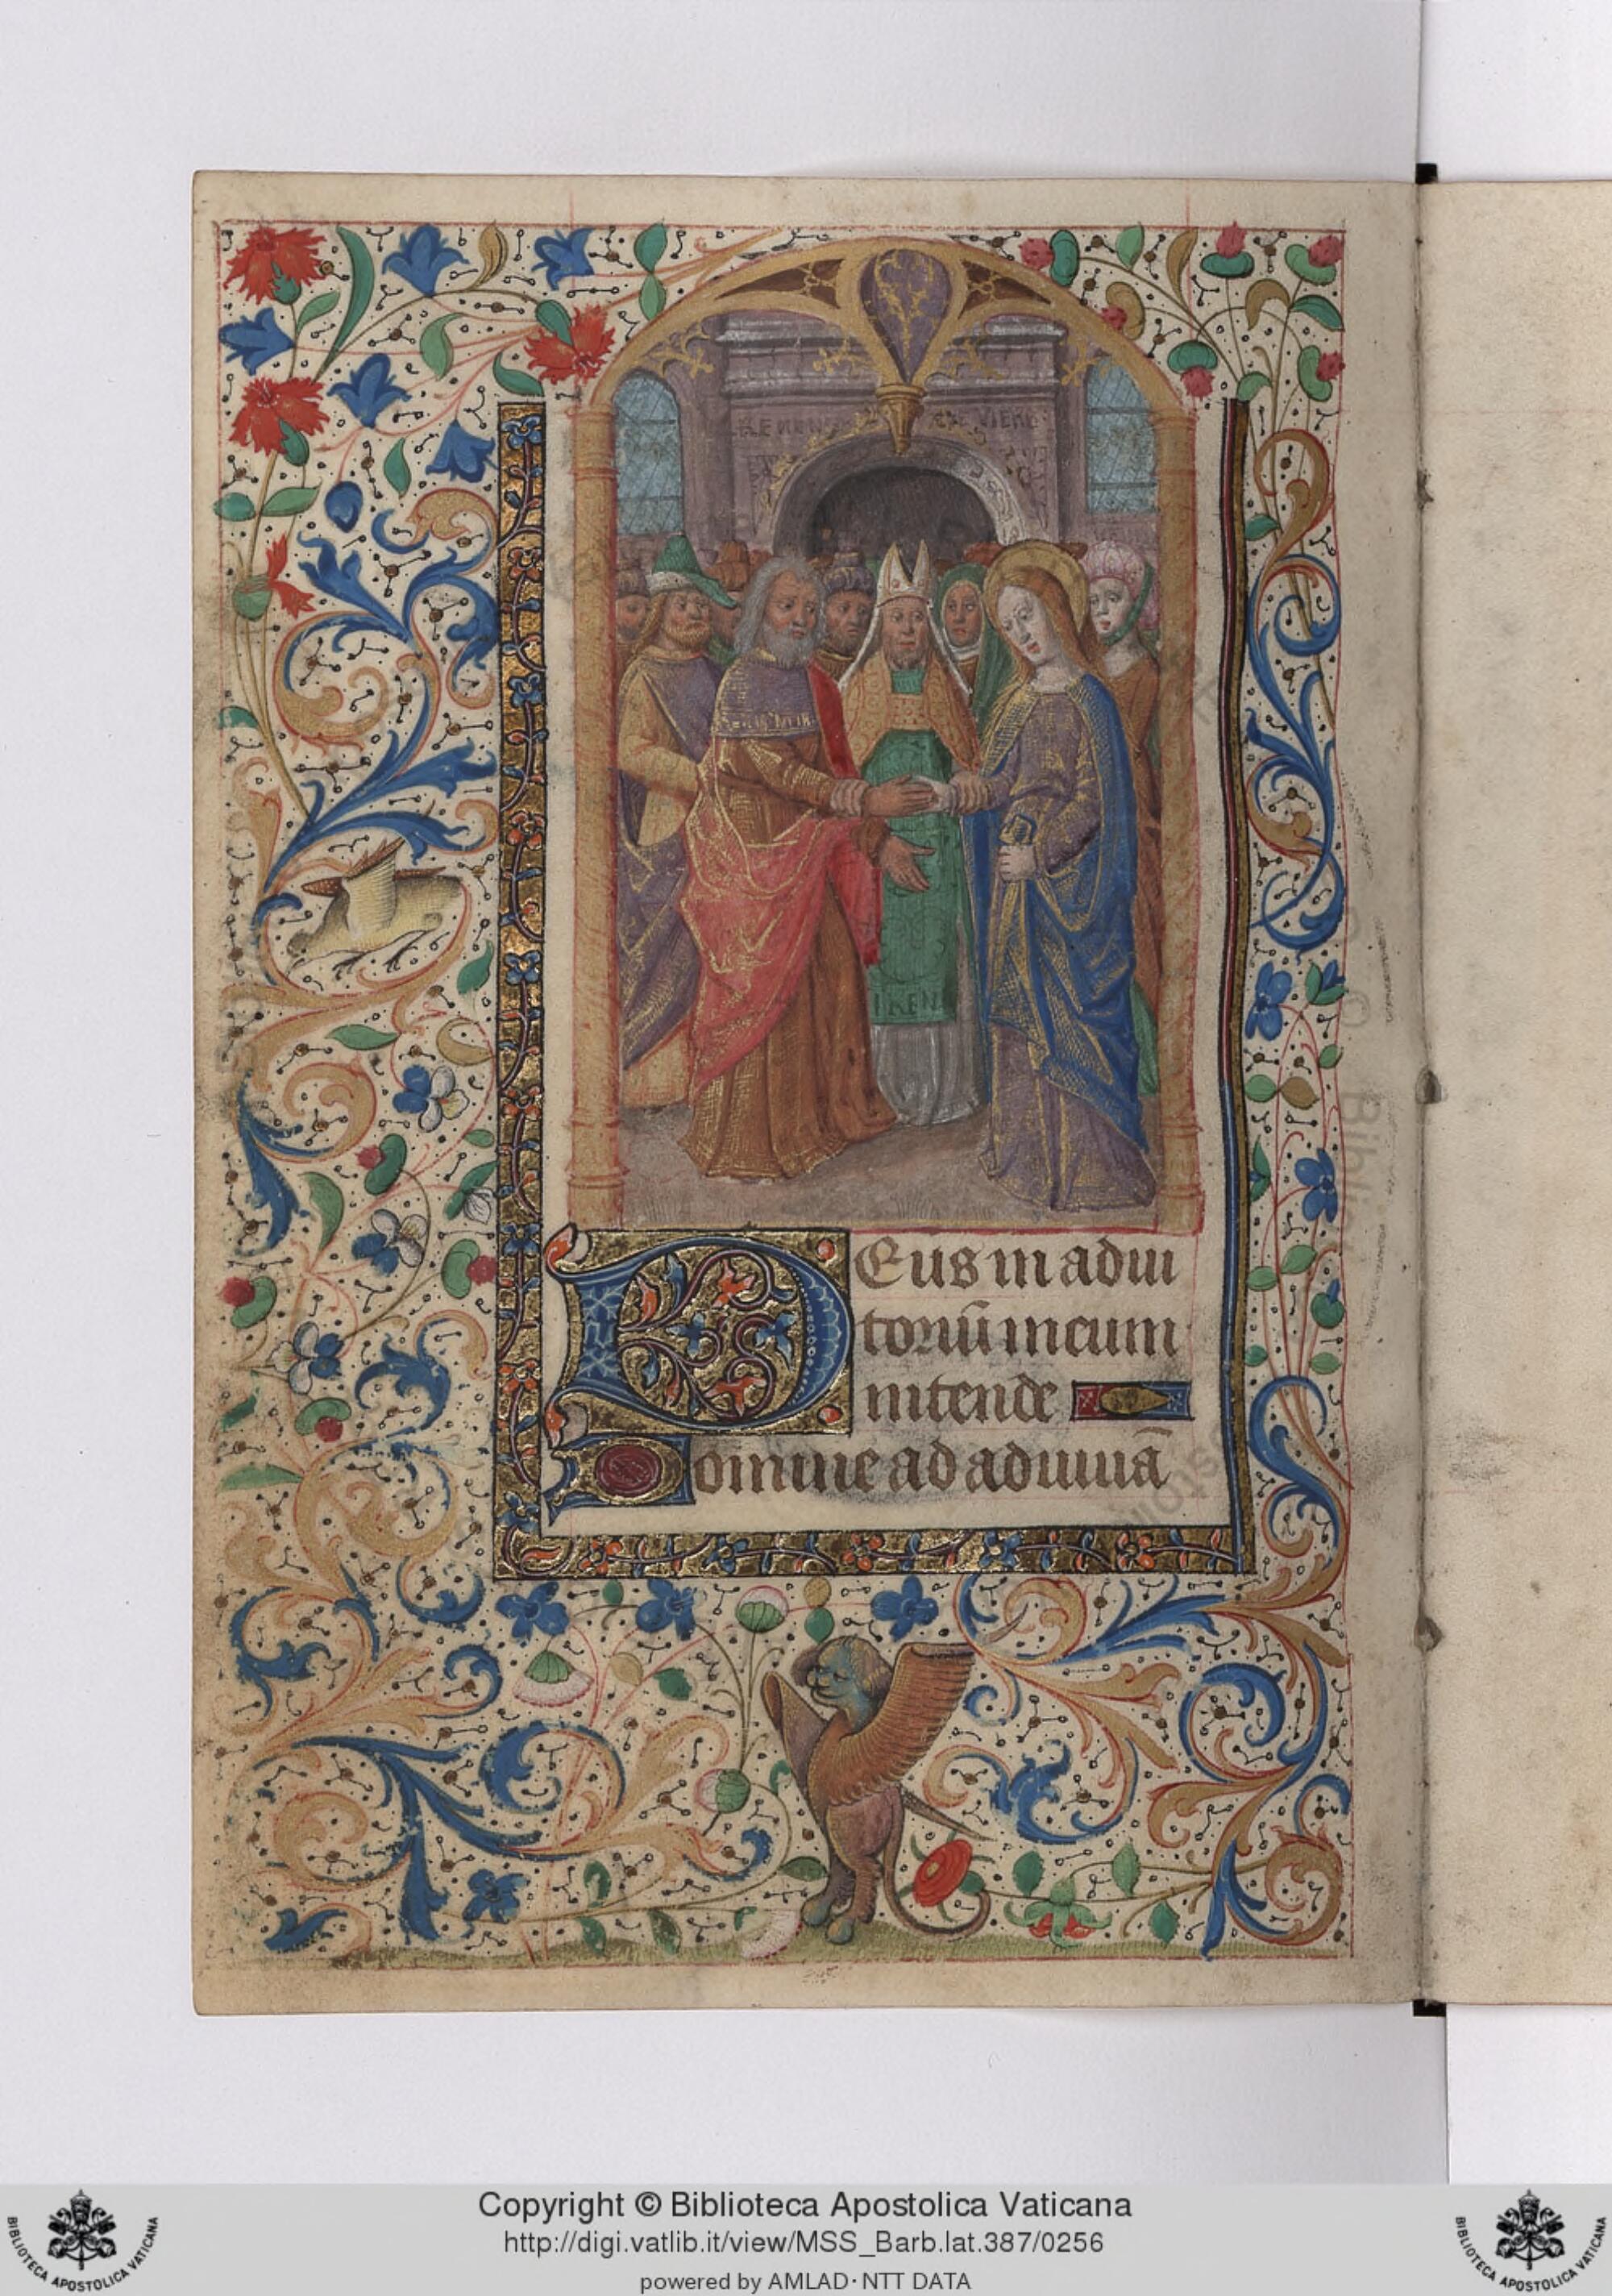 Deus in adiu
toriū meum
intende
Domine ad adiuuā
Copyright © Biblioteca Apostolica Vaticana
http://digi.vatlib.it/view/MSS_Barb.lat.387/0256
powered by AMLAD·NTT DATA
BIBLIOTECA APOSTOLICA VATICANA
BIBLIOTECA APOSTOLICA VATICANA